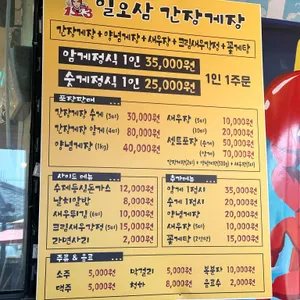 일오삼 간장게장
간장게장 + 양념게장 + 새우장 + 크림새우간장 + 꽃게탕
암게정식 1인 35,000원
숫게정식 1인 25,000원
1인 1주문
포장판매
간장게장 숫게 (3마리) 30,000원
간장게장 암게 (4마리) 80,000원
양념게장 (1kg) 40,000원
새우장 (5마리) 10,000원
(10마리) 20,000원
세트포장 (숫게) 50,000원
(암게) 70,000원
사이드메뉴
수제등심돈가스 12,000원
날치알밥 8,000원
새우튀김 (6마리) 10,000원
크림새우간장 (5마리) 15,000원
라면사리 2,000원
추가메뉴
암게 1접시 35,000원
숫게 1접시 20,000원
양념게장 20,000원
새우장 (5마리) 10,000원
꽃게탕 15,000원
주류 & 음료
소주 5,000원
막걸리 5,000원
복분자 10,000원
맥주 5,000원
청하 6,000원
음료수 2,000원